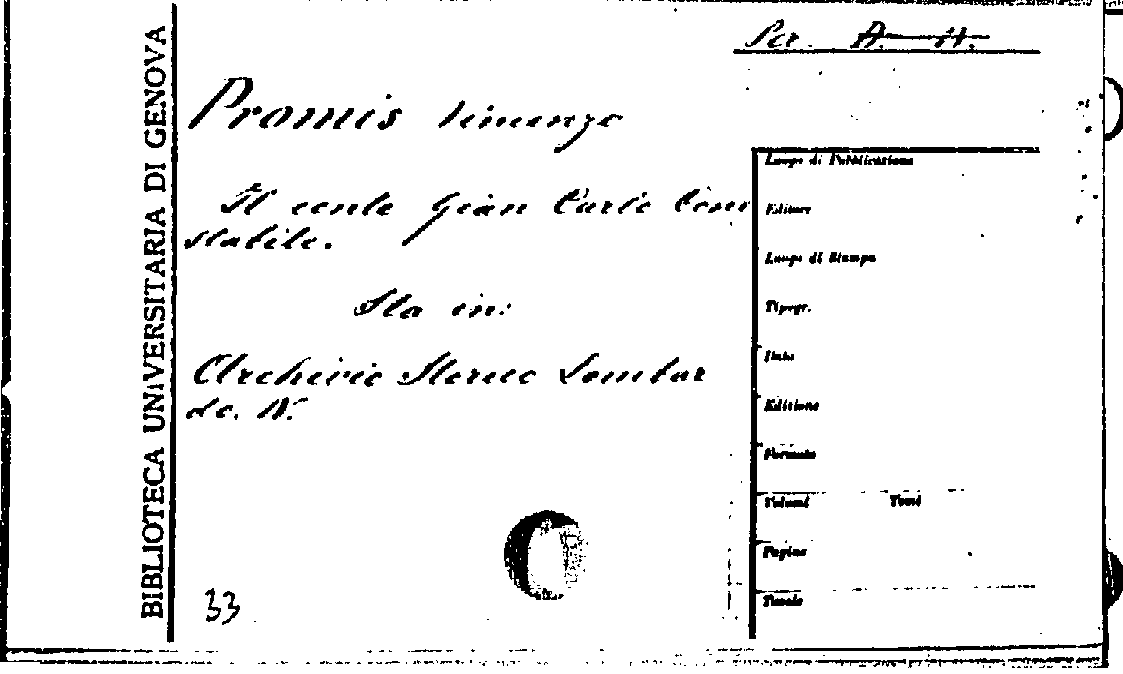 BIBLIOTECA UNIVERSITARIA DI GENOVA
Per. A. H.
Promis Vincenzo
Il conte Gian Carlo Cone
stabile.
Sta in:
Archivio Storico Lombar
do. IV.
33
Luogo di Pubblicazione
Editore
Luogo di Stampa
Tipogr.
Data
Edizione
Formato
Volumi Tomi
Pagine
Tavole